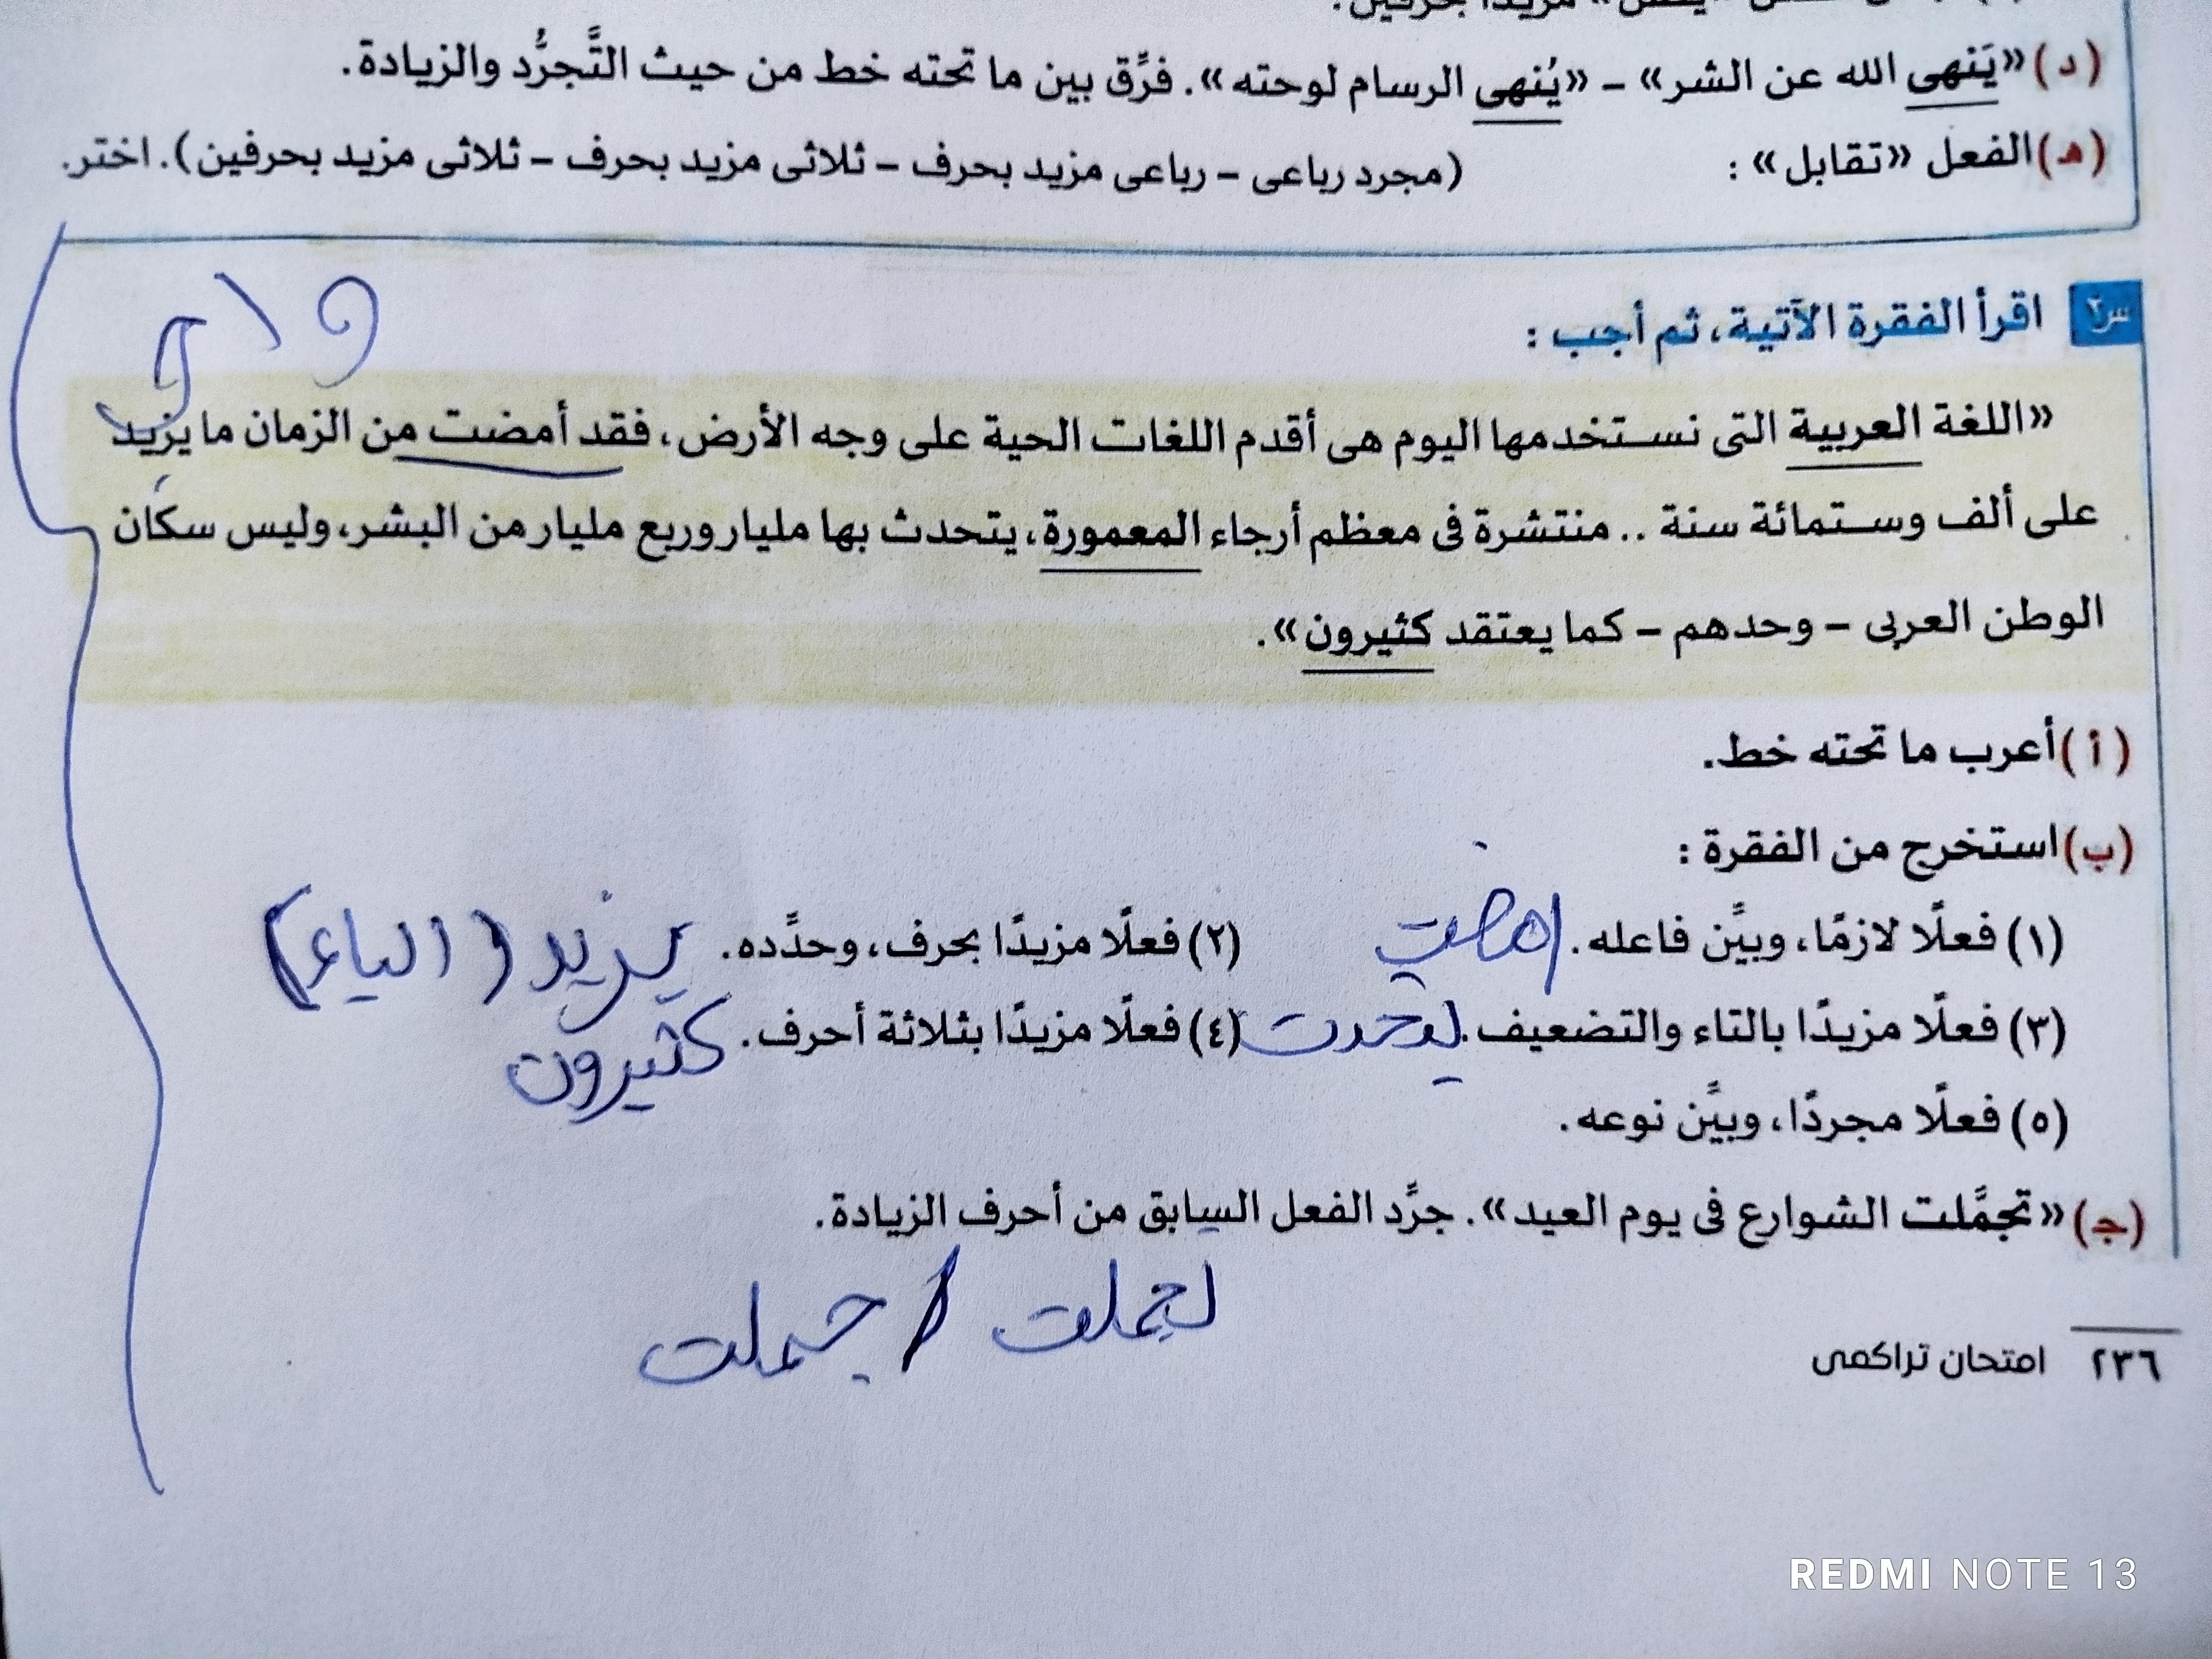 (د) «يَنهى الله عن الشر» – «يُنهى الرسام لوحته». فرِّق بين ما تحته خط من حيث التَّجرُّد والزيادة.
(هـ) الفعل «تقابل» : (مجرد رباعى – رباعى مزيد بحرف – ثلاثى مزيد بحرف – ثلاثى مزيد بحرفين). اختر.
اقرأ الفقرة الآتية، ثم أجب :
و ا ي
«اللغة العربية التى نستخدمها اليوم هى أقدم اللغات الحية على وجه الأرض، فقد أمضت من الزمان ما يزيد
على ألف وستمائة سنة .. منتشرة فى معظم أرجاء المعمورة، يتحدث بها مليار وربع مليار من البشر، وليس سكان
الوطن العربى – وحدهم – كما يعتقد كثيرون».
(أ) أعرب ما تحته خط.
(ب) استخرج من الفقرة :
(١) فعلًا لازمًا، وبيِّن فاعله. امضت (٢) فعلًا مزيدًا بحرف، وحدِّده. يزيد (الياء)
(٣) فعلًا مزيدًا بالتاء والتضعيف. يتحدث (٤) فعلًا مزيدًا بثلاثة أحرف. كثيرون
(٥) فعلًا مجردًا، وبيِّن نوعه.
(جـ) «تجمَّلت الشوارع فى يوم العيد». جرِّد الفعل السابق من أحرف الزيادة.
تجملت / جملت
٢٣٦ امتحان تراكمى
REDMI NOTE 13